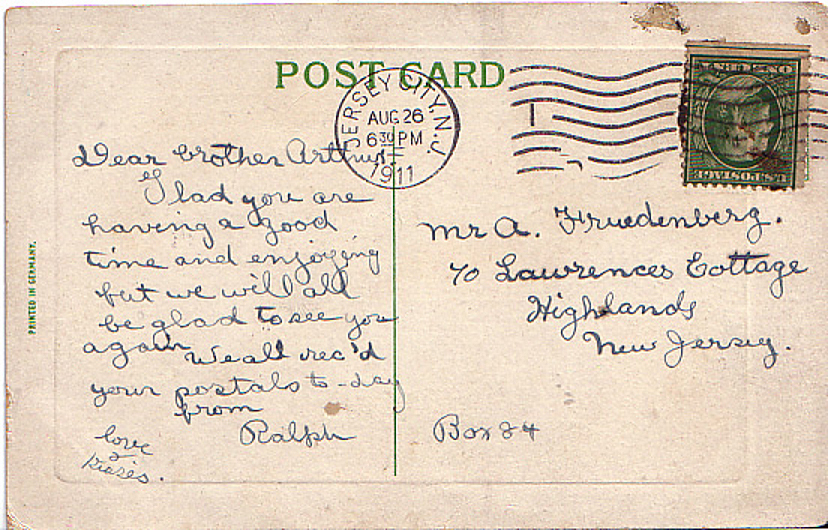 POST CARD
JERSEY CITY, N.J.
AUG 26
6 30 PM
1911
Dear brother Arthur
Glad you are
having a good
time and enjoying
but we will all
be glad to see you
again We all rec'd
your postals to-day
from
Ralph
love
&
Kisses.
Mr A. Fruedenberg.
c/o Lawrences Cottage
Highlands
New Jersey.
Box 84
PRINTED IN GERMANY.
U.S. POSTAGE